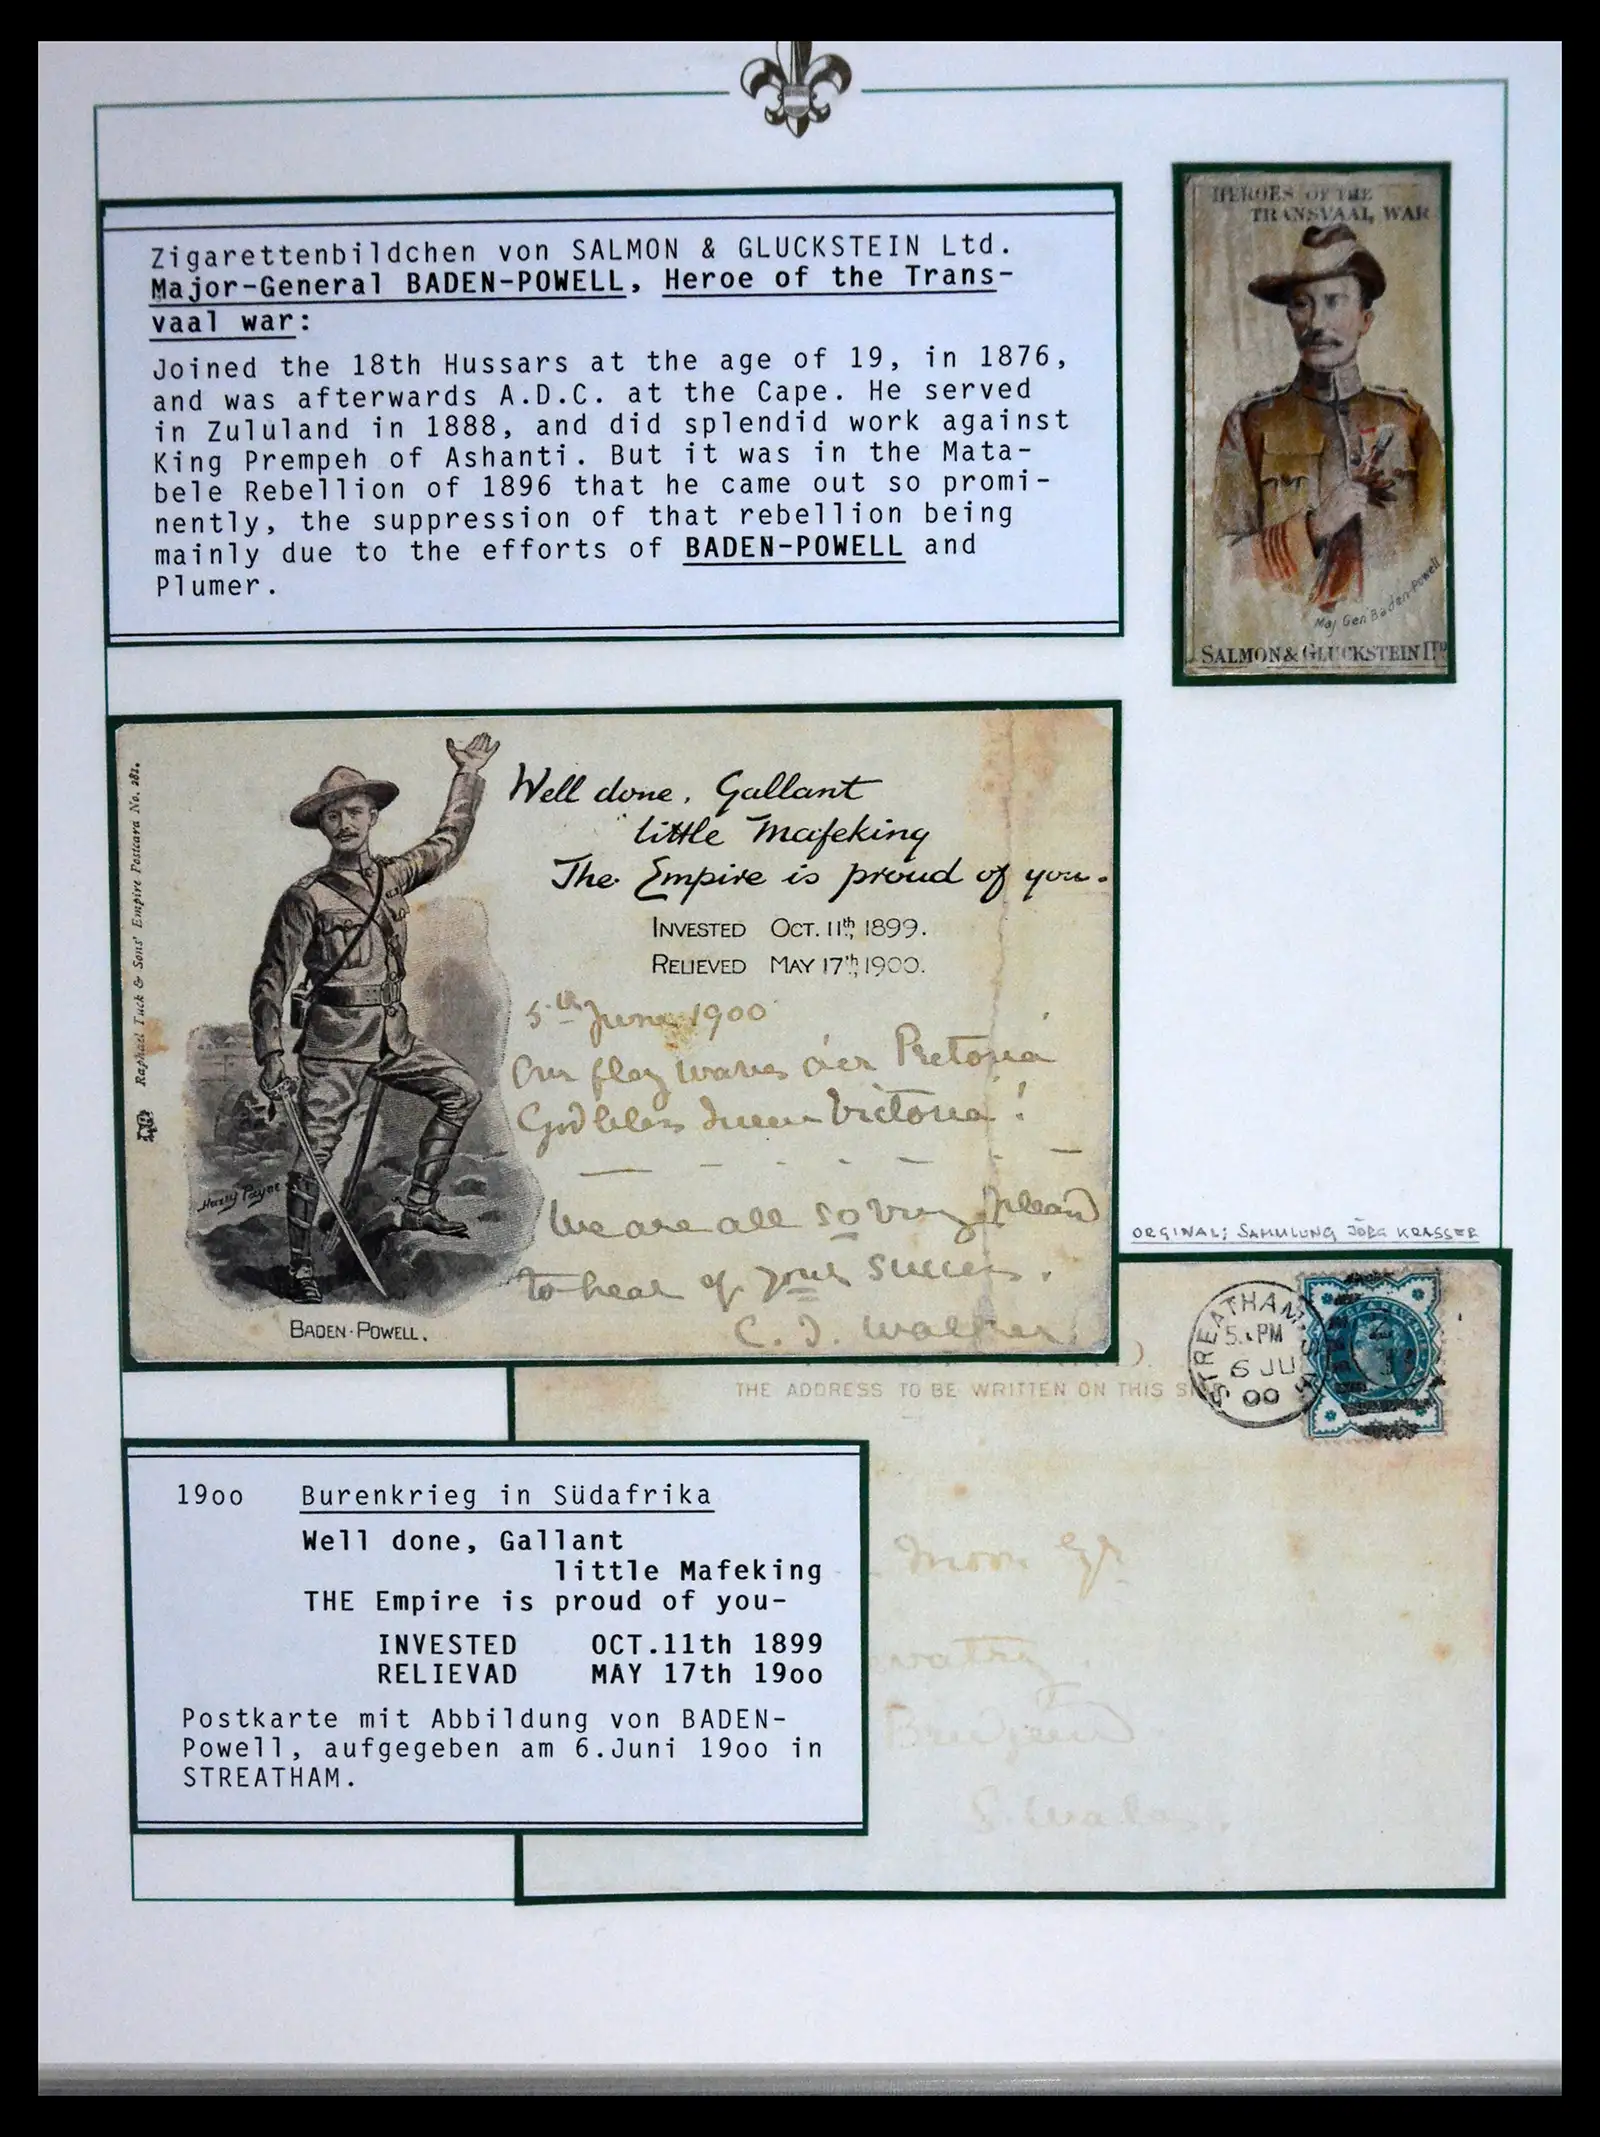 Zigarettenbildchen von SALMON & GLUCKSTEIN Ltd.
Major-General BADEN-POWELL, Heroe of the Trans-
vaal war:
Joined the 18th Hussars at the age of 19, in 1876,
and was afterwards A.D.C. at the Cape. He served
in Zululand in 1888, and did splendid work against
King Prempeh of Ashanti. But it was in the Mata-
bele Rebellion of 1896 that he came out so promi-
nently, the suppression of that rebellion being
mainly due to the efforts of BADEN-POWELL and
Plumer.
HEROES OF THE
TRANSVAAL WAR
Maj Gen Baden-Powell
SALMON & GLUCKSTEIN LTD
Raphael Tuck & Sons' Empire Postcard No. 281.
Well done, Gallant
little Mafeking
The Empire is proud of you.
INVESTED OCT. 11th, 1899.
RELIEVED MAY 17th, 1900.
5th June 1900
Our flag waves o'er Pretoria
God bless Queen Victoria!
We are all so very pleased
to hear of your success.
C. J. Walker
Harry Payne
BADEN-POWELL.
ORGINAL; SAMMLUNG JÖRG KRASSER
STREATHAM S.W.
5. PM
6 JU
00
THE ADDRESS TO BE WRITTEN ON THIS
Moon Esqr
Bridgend
S. Wales.
1900 Burenkrieg in Südafrika
Well done, Gallant
little Mafeking
THE Empire is proud of you-
INVESTED OCT.11th 1899
RELIEVAD MAY 17th 19oo
Postkarte mit Abbildung von BADEN-
Powell, aufgegeben am 6.Juni 19oo in
STREATHAM.